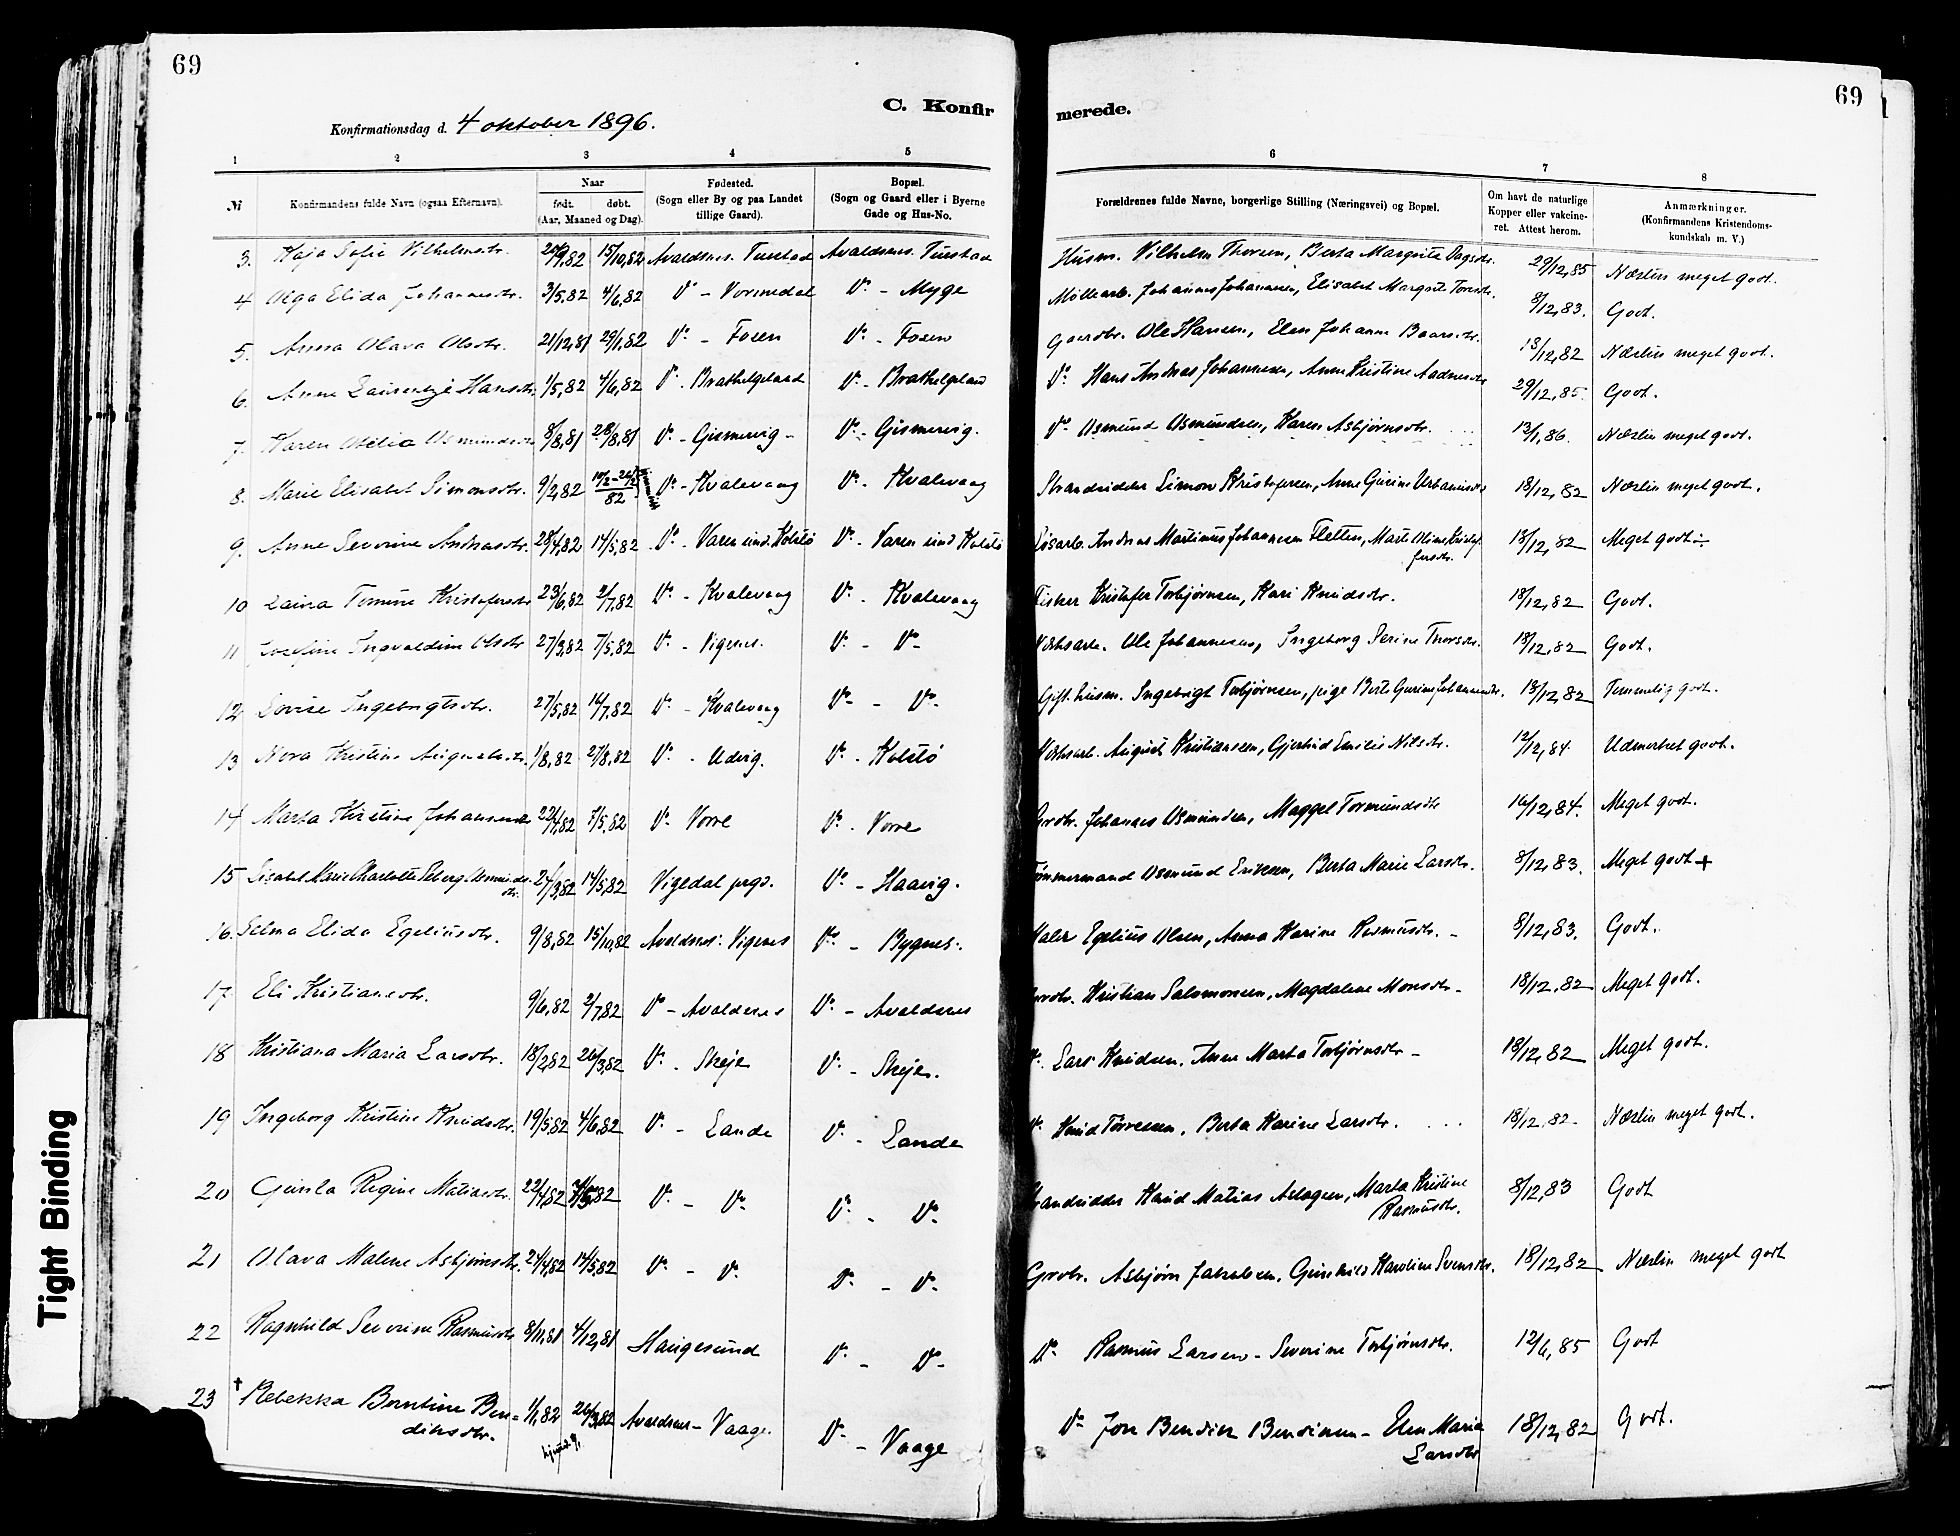 69
69
C. Konfir
merede.
Konfirmationsdag d. 4 oktober 1896.
1 2 3 4 5 6 7 8
№ Konfirmandens fulde Navn (ogsaa Efternavn). Naar født. døbt. (Aar, Maaned og Dag). Fødested. (Sogn eller By og paa Landet tillige Gaard). Bopæl. (Sogn og Gaard eller i Byerne Gade og Hus-No. Forældrenes fulde Navne, borgerlige Stilling (Næringsvei) og Bopæl. Om havt de naturlige Kopper eller vakcineret. Attest herom. Anmærkninger. (Konfirmandens Kristendomskundskab m. V.)
3. Kaja Sofie Vilhelmsdtr. 15/10,82 Avaldsnes. Tuestad Avaldsnes. Tuestad Husm. Vilhelm Thorsen, Berta Margrete Dagsdtr. 29/12,85 Næsten meget godt.
4 Olga Elida Johannesdtr. 3/5,82 4/6,82 Do - Vormedal Do - Myge Møllearb. Johannes Johannesen, Elisabet Margrete 8/12,83. Godt.
5. Anna Olava Olsdtr. 21/12,81 29/1,82 Do - Fosen Do - Fosen Gaardbr. Ole Hansen, Elen Johanne Baarsdtr. 13/12,82 Næsten meget godt.
6. Anne Hansdtr. 1/5,82 4/6,82 Do - Brathelgeland Do - Brathelgeland Do Hans Andreas Johannesen, Anne Kristine Aadnesdtr 29/12,85. Godt.
7. Karen Otelia Osmundsdtr 8/8,81 28/8,81 Do - Gismervig - Do - Gismervig. Do Osmund Osmundsen, Karen Asbjørnsdtr. 13/1,86. Næsten meget godt.
8. Marie Elisabet Simonsdtr. 9/2,82 82 Do - Kvalevaag Do - Kvalevaag Strandsidder Simon Kristofersen, Anne Gurine Urbanusdtr 18/12,82 Næsten meget godt.
9. Anne Severine Andreasdtr. 28/4,82 14/5,82 Do - Varen und. Kolstø Do - Varen und Kolstø Andreas Martinus Johannesen Fletten, Marte Oline Kristof-
fersdtr. 18/12,82 Meget godt ÷
10 Laina Tomine Kristofersdtr 23/6,82 2/7,82 Do - Kvalevaag Do - Kvalevaag Fisker Kristofer Torbjørnsen, Kari Knudsdtr. 18/12,82 Godt.
11 Josefine Ingvaldine Olsdtr 27/3,82 7/5,82 Do - Vigsnes. Do - Do Verksarb. Ole Johannesen, Ingeborg Serine Thorsdtr. 18/12,82 Godt.
12 Lovise Ingebrigtsdtr. 27/5,82 16/7,82 Do - Kvalevaag Do - Do Gift husm. Ingebrigt Torbjørnsen, pige Berte Gurine Johannesdtr. 18/12,82 Temmelig godt.
13 Nora Kristine Augustsdtr. 1/8,82 27/8,82 Do - Udvig. Do - Kolstø Verksarb. August Kristiansen, Gjertrud Emilie Nilsdtr. 12/12,84. Udmerket godt.
14 Marta Kirstine Johannesdtr 22/4,82 7/5,82 Do Vorre Do - Vorre Grdbr. Johannes Osmundsen, Maggel Tormundsdtr 16/12,84. Meget godt.
15 Lisabet Marie Charlotte Osmundsdtr. 24/3,82 14/5,82 Vigedal prgj. Do - Haavig. Tømmermand Osmund Eriksen, Berta Marie Larsdtr. 8/12,83. Meget godt +
16. Selma Elida Egeliusdtr. 9/8,82 15/10,82 Avaldsnes: Vigsnes Do - Bygnes. Maler Egelius Olsen, Anna Karine Rasmusdtr. - 8/12,83. Godt.
17. Eli Kristiansdtr. 9/6,82 2/7,82 Do - Avaldsnes Do - Avaldsnes Grdbr. Kristian Salomonsen, Magdalene Monsdtr - 18/12,82 Meget godt.
18 Kristiana Maria Larsdtr. 18/2,82 26/3,82 Do - Skeje Do - Skeje. Do. Lars Knudsen, Anne Marta Torbjørnsdtr - 18/12,82 Meget godt.
19 Ingeborg Kristine Knudsdtr. 19/5,82 4/6,82 Do - Lande Do - Lande Do. Knud Tørresen, Berta Karine Larsdtr. 18/12,82. Næsten meget godt.
20 Gunla Regine Matiasdtr. 22/4,82 7/5,82 Do - Do Do - Do Strandsidder Knud Matias Aslagsen, Marta Kristine
Rasmusdtr. 8/12,83 Godt
21 Olava Malene Asbjørnsdtr. 24/4,82 14/5,82 Do - Do Do - Do Grdbr. Asbjørn Jakobsen, Gunhild Karoline Svensdtr. 18/12,82 Næsten meget godt
22 Ragnhild Severine Rasmusdtr 8/11,81 4/12,81 Haugesund Do - Do Do Rasmus Larsen - Severine Torbjørnsdtr. 12/6,85 Godt
23 † Rebekka Berntine Ben=
diksdtr. 1/1,82 26/3,82 Avaldsnes - Vaage. Do - Vaage Do Jon Bendix Bendixsen - Elen Maria
Larsdtr 18/12,82 Godt.
Tight Binding